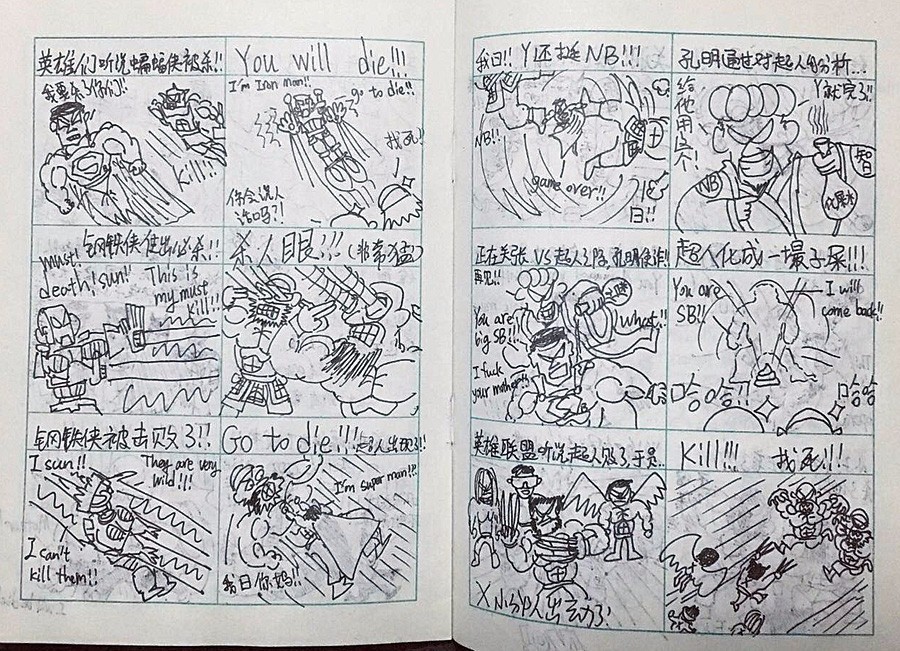 英雄们听说蝙蝠侠被杀!!
我要杀了你们!!
Kill!!
You will die!!!
I'm Iron man!!
go to die!!
找死!!
你会说人
话吗?!
钢铁侠使出必杀!!
must!
death! sun!
This is
my must
kill!!
杀人眼!!!(非常猛)
钢铁侠被击败了!!
I sun!!
They are very
wild!!!
I can't
kill them!!
Go to die!!!超人出现了!!
I'm super man!!!
我日你妈!!
我日!! Y还挺NB!!!
NB!!
game over!!
日!!
孔明通过对超人的分析...
给他用这个!
Y就完了!!
NB
智
正在关张VS超人之际,孔明使诈!!
再见!!
You are
big SB!!
what!!
I fuck
your mother!!
超人化成一撮子屎!!!
You are
SB!!
I will
come back!!
哈哈!!
哈哈
英雄联盟听说超人毁了,于是...
X
人出动了
Kill!!! 找死!!!